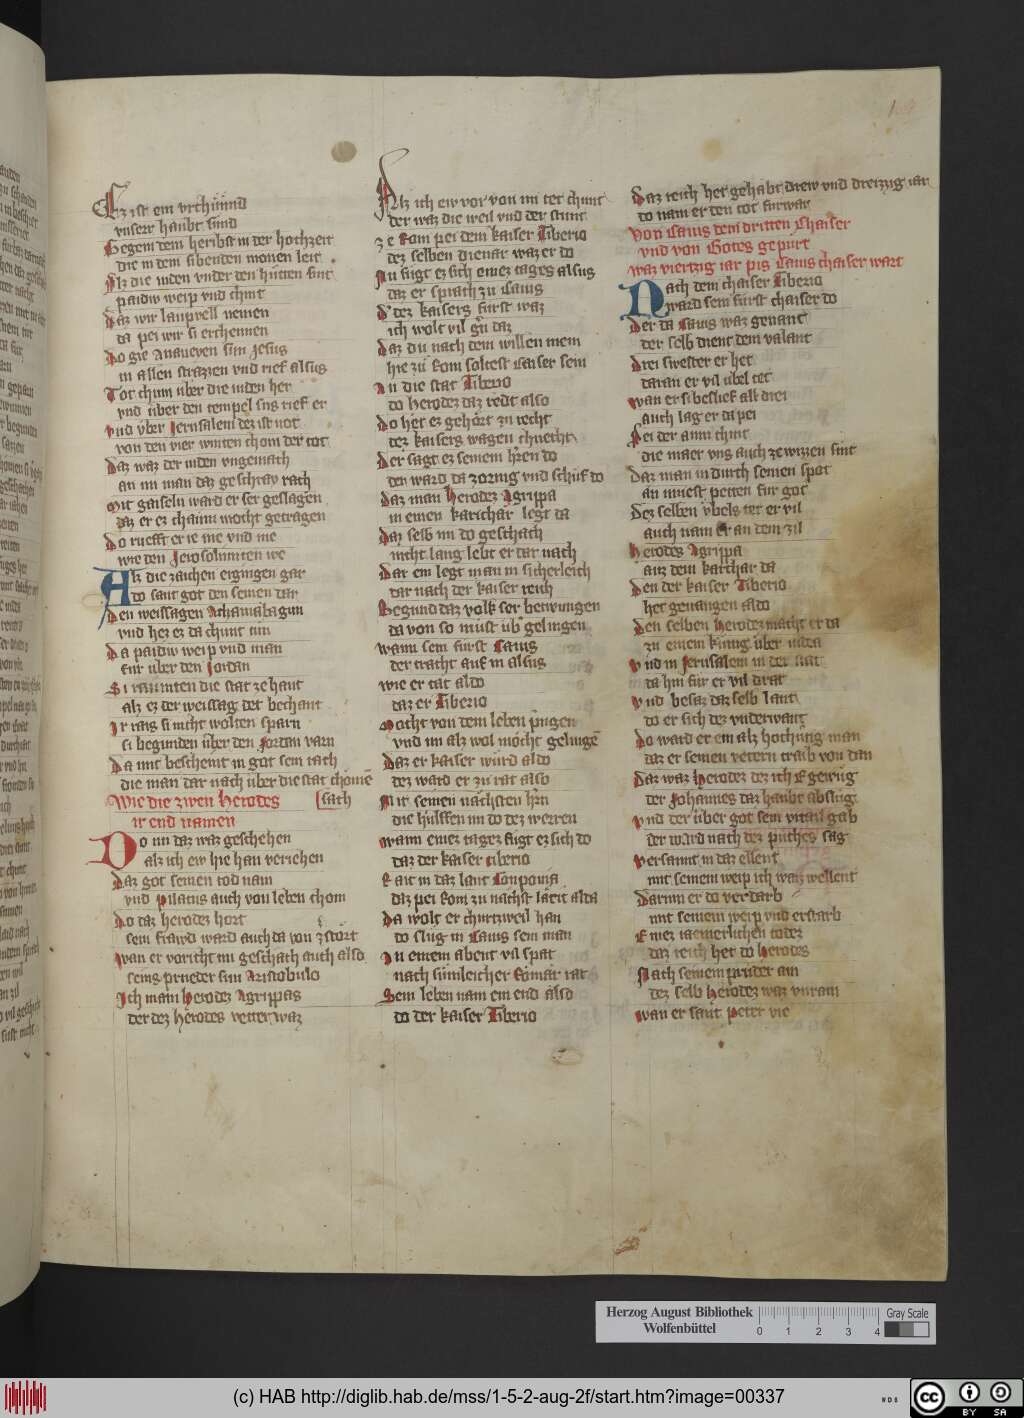 Ez ist ein vrchünnd
vnserr haubt sünd
Gegem dem heribst in der hochzeit
die in dem sibenden monen leit
Alz die iuden vnder den hütten sint
paidiu weip vnd chint
Daz wir laupvell nemen
da pei wir si erchennen
Do gie Ananeven sun Jesus
in allen strazzen vnd rief alsus
Tot chum über die iuden her
vnd über den tempel sus rief er
vnd vber Jerusalem dez ist not
von den vier winten chom der tot
Daz waz der iuden vngemach
an im man daz geschray rach
Mit gaiseln ward er ser geslagen
daz er ez chaum mocht getragen
Do rueft er ie me vnd me
wie den Jerosolimiten we
Alz die zaichen ergingen gar
do sant got den seinen dar
Den weissagen Achamabagun
vnd hez ez da chunt tun
Da paidiu weip vnd man
für über den Jordan
Si raumten die stat ze hant
alz ez der weissag det bechant
Ir rats si nicht wolten sparn
si begunden über den Jordan varn
Da mit beschemt in got sein rach
die man dar nach über die stat chomē
[sach
Wie die zwen Herodes
ir end namen
Do nu daz waz geschehen
alz ich ew hie han veriehen
Daz got seinen tod nam
vnd Pilatus auch von leben chom
Do daz herodez hort
sein frawd ward auch da von zstort
Wan er voricht im geschäch auch also
seins prueder sun Aristobulo
Ich main Herodez Agrippas
der dez herodes vetter waz
Alz ich ew vor von im tet chunt
der waz die weil vnd der stunt
ze Rom pei dem kaiser Tiberio
dez selben dienär waz er do
Nu fügt ez sich einez tages alsus
daz er sprach zu Caius
Dˢ dez kaisers fürst waz
ich wolt vil gˢn daz
Daz du nach dem willen mein
hie zu Rom soltest kaiser sein
An die stat Tiberio
do Herodez daz redt also
Do het ez gehört zu recht
dez kaisers wagen chnecht
Der sagt ez seinem hˢren do
der ward da zornig vnd schuf do
Daz man Herodez Agrippa
in einen karichär legt da
Daz selb im do geschach
nicht lang lebt er dar nach
Dar ein legt man in sicherleich
dar nach der kaiser reich
Begund daz volk ser betwungen
da von so müst übˢ gelingen
wann sein fürst Caius
der tracht auf in alsus
wie er tät aldo
daz er Tiberio
Möcht von dem leben pringen
vnd im alz wol möcht gelingē
Daz er kaiser würd aldo
dez ward er zu rat also
Mit seinen nächsten hˢrn
die hulffen im do dez werren
wann einez tagez fügt ez sich do
daz der kaiser Tiberio
Rait in daz lant Conpania
daz pei Rom zu nächst lätit alda
Da wolt er churtzweil han
do slug in Caius sein man
An einem abent vil spat
nach sümleicher Römär rat
Sein leben nam ein end also
do der kaiser Tiberio
Daz reich het gehabt drew vnd dreizzig iar
do nam er den tot fürwar
von Caius dem dritten Chaiser
vnd von Gotes gepurt
waz viertzig iar pis Caius chaiser wart
Nach dem chaiser Tiberio
ward sein fürst chaiser do
Der da Caius waz genant
der selb dient dem valant
Drei swester er het
daran er vil übel tet
wan er si beslief all drei
auch lag er da pei
Bei der ainn chint
die maer vns auch zewizzen sint
Daz man in durch seinen spot
an müest petten für got
Dez selben vbels tet er vil
auch nam er an dem zil
Herodes Agrippa
auz dem karchär da
Den der kaiser Tiberio
het geuangen aldo
Den selben Herodez macht er da
zu einem künig über iuda
vnd in Jerusalem in der stat
da hin für er vil drat
vnd besaz daz selb lant
do er sich dez vnderwant
Do ward er ein alz hochuertig man
daz er seinen vetern traib von dan
Daz waz Herodez dez ich E gewug
der Johannes daz haubt abslug
vnd der über got sein vrtail gab
der ward nach dez puches sag
versannt in daz ellent
mit seinem weip ich waz wellent
Darinn er do verdarb
mit seinem weip vnd erstarb
Einez iaemerlichen todez
daz reich het do herodes
Nach seinem prüder ain
dez selb Herodez waz vnrain
Wan er sant Peter vie
Herzog August Bibliothek
Wolfenbüttel
0 1 2 3 4
Gray Scale
(c) HAB http://diglib.hab.de/mss/1-5-2-aug-2f/start.htm?image=00337
WDB
cc
BY SA